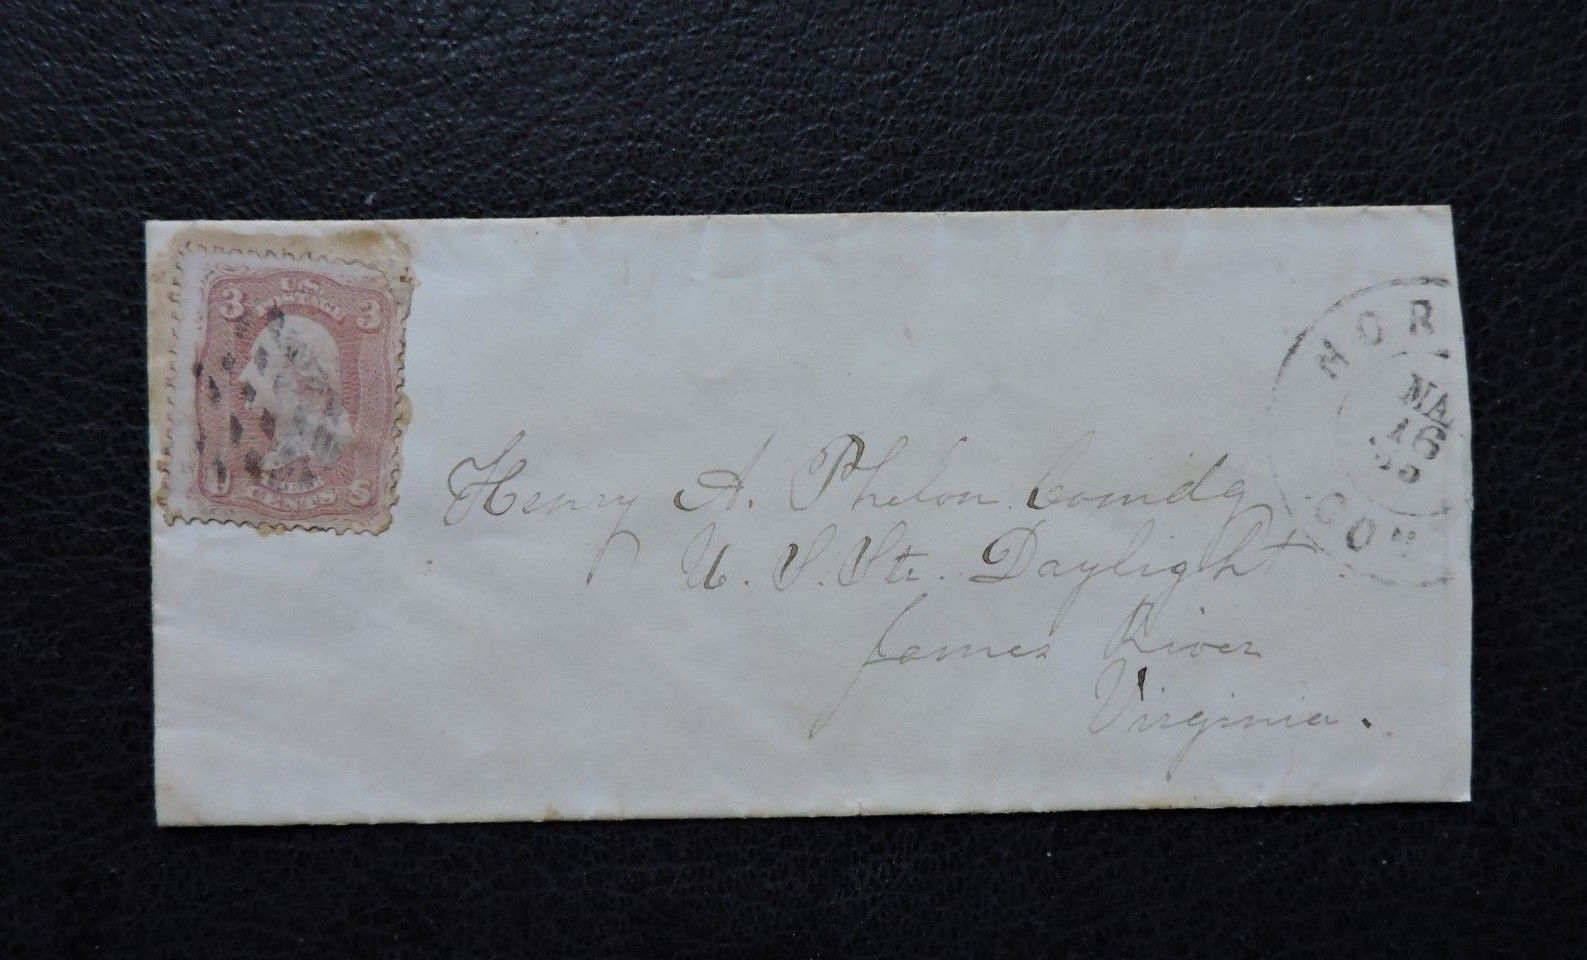 3 U.S. 3
POSTAGE
CENTS
NOR
MA
16
CON
Henry A. Phelon Comdg
U. S. Str. Daylight
James River
Virginia.